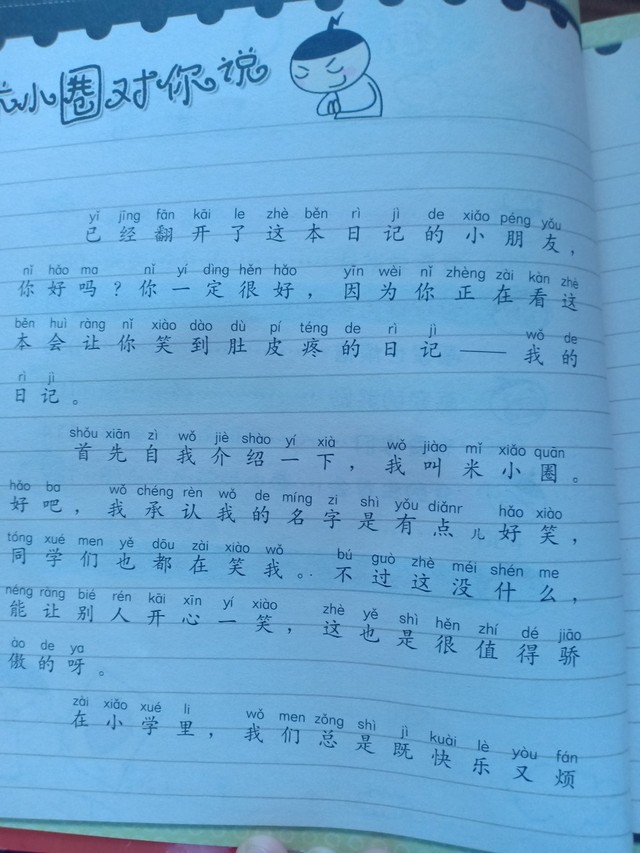 米小圈对你说
yǐ jīng fān kāi le zhè běn rì jì de xiǎo péng yǒu
已经翻开了这本日记的小朋友，
nǐ hǎo ma nǐ yí dìng hěn hǎo yīn wèi nǐ zhèng zài kàn zhè
你好吗？你一定很好，因为你正在看这
běn huì ràng nǐ xiào dào dù pí téng de rì jì wǒ de
本会让你笑到肚皮疼的日记——我的
rì jì
日记。
shǒu xiān zì wǒ jiè shào yí xià wǒ jiào mǐ xiǎo quān
首先自我介绍一下，我叫米小圈。
hǎo ba wǒ chéng rèn wǒ de míng zi shì yǒu diǎnr hǎo xiào
好吧，我承认我的名字是有点儿好笑，
tóng xué men yě dōu zài xiào wǒ bú guò zhè méi shén me
同学们也都在笑我。不过这没什么，
néng ràng bié rén kāi xīn yí xiào zhè yě shì hěn zhí dé jiāo
能让别人开心一笑，这也是很值得骄
ào de ya
傲的呀。
zài xiǎo xué li wǒ men zǒng shì jì kuài lè yòu fán
在小学里，我们总是既快乐又烦